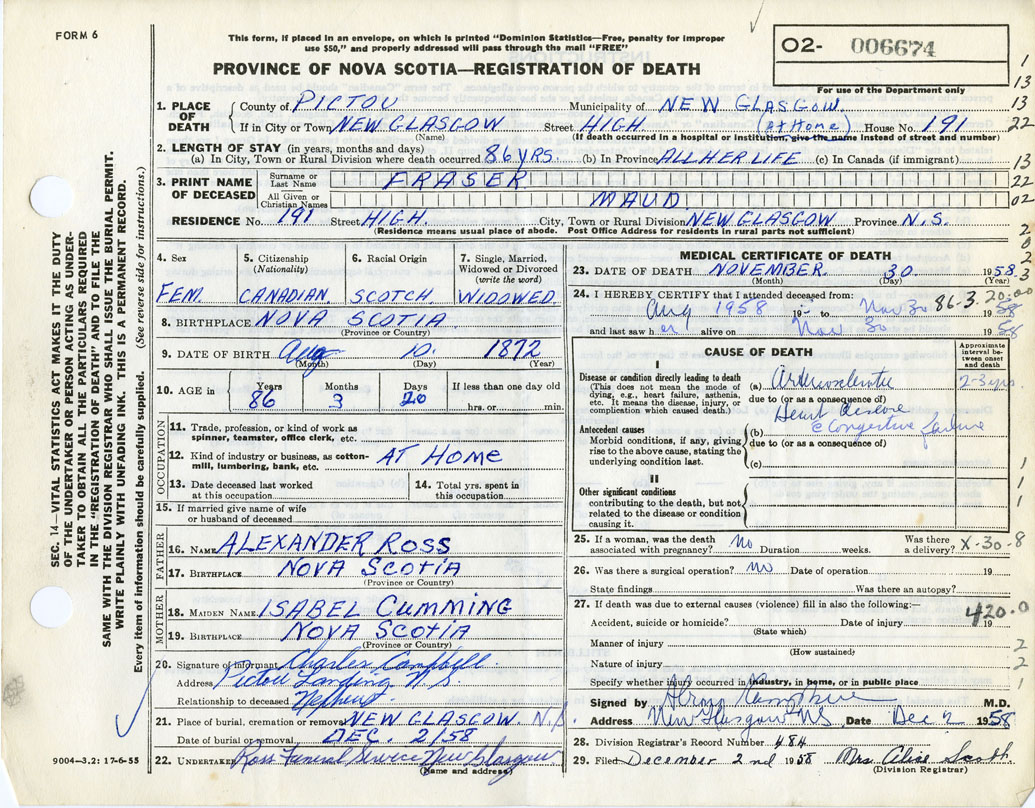 FORM 6
This form, if placed in an envelope, on which is printed "Dominion Statistics—Free, penalty for improper
use $50," and properly addressed will pass through the mail "FREE"
PROVINCE OF NOVA SCOTIA—REGISTRATION OF DEATH
02- 006674
For use of the Department only
1
13
13
22
13
13
02
2
1. PLACE OF DEATH
County of PICTOU Municipality of NEW GLASGOW.
If in City or Town NEW GLASGOW Street HIGH (at Home) House No. 191
(Name) (If death occurred in a hospital or institution, give the name instead of street and number)
2. LENGTH OF STAY (in years, months and days)
(a) In City, Town or Rural Division where death occurred 86 YRS. (b) In Province ALL HER LIFE (c) In Canada (if immigrant)
3. PRINT NAME OF DECEASED
Surname or Last Name FRASER
All Given or Christian Names MAUD
RESIDENCE No. 191 Street HIGH. City, Town or Rural Division NEW GLASGOW Province N.S.
(Residence means usual place of abode. Post Office Address for residents in rural parts not sufficient)
SEC. 14—VITAL STATISTICS ACT MAKES IT THE DUTY
OF THE UNDERTAKER OR PERSON ACTING AS UNDER-
TAKER TO OBTAIN ALL THE PARTICULARS REQUIRED
IN THE "REGISTRATION OF DEATH" AND TO FILE THE
SAME WITH THE DIVISION REGISTRAR WHO SHALL ISSUE THE BURIAL PERMIT.
WRITE PLAINLY WITH UNFADING INK. THIS IS A PERMANENT RECORD.
Every item of information should be carefully supplied. (See reverse side for instructions.)
4. Sex
FEM.
5. Citizenship (Nationality)
CANADIAN
6. Racial Origin
SCOTCH
7. Single, Married, Widowed or Divorced (write the word)
WIDOWED
8. BIRTHPLACE NOVA SCOTIA
(Province or Country)
9. DATE OF BIRTH Aug 10. 1872
(Month) (Day) (Year)
10. AGE in Years 86 Months 3 Days 20 If less than one day old
hrs. or min.
OCCUPATION
11. Trade, profession, or kind of work as
spinner, teamster, office clerk, etc.
12. Kind of industry or business, as cotton-
mill, lumbering, bank, etc. AT HOME
13. Date deceased last worked
at this occupation
14. Total yrs. spent in
this occupation
15. If married give name of wife
or husband of deceased
FATHER
16. NAME ALEXANDER ROSS
17. BIRTHPLACE NOVA SCOTIA
(Province or Country)
MOTHER
18. MAIDEN NAME ISABEL CUMMING
19. BIRTHPLACE NOVA SCOTIA
(Province or Country)
20. Signature of informant Charles Campbell.
Address Pictou Landing N.S.
Relationship to deceased Nephew
21. Place of burial, cremation or removal NEW GLASGOW. N.S.
Date of burial or removal DEC. 2/58
22. UNDERTAKER Ross Funeral Service New Glasgow
(Name and address)
9004—3.2: 17-6-55
MEDICAL CERTIFICATE OF DEATH
23. DATE OF DEATH NOVEMBER. 30. 1958
(Month) (Day) (Year)
24. I HEREBY CERTIFY that I attended deceased from: 86-3.20:00
Aug 1958 19 to Nov 30 1958
and last saw her alive on Nov 30 1958
CAUSE OF DEATH
Approximate interval between onset and death
I
Disease or condition directly leading to death
(This does not mean the mode of
dying, e.g., heart failure, asthenia,
etc. It means the disease, injury, or
complication which caused death.)
(a) Arteriosclerotic 2-3 yrs.
due to (or as a consequence of)
Heart Disease
Antecedent causes
Morbid conditions, if any, giving
rise to the above cause, stating the
underlying condition last.
(b) c Congestive failure
due to (or as a consequence of)
(c)
1
1
II
Other significant conditions
contributing to the death, but not
related to the disease or condition
causing it.
1
25. If a woman, was the death
associated with pregnancy? No Duration weeks. Was there
a delivery? X-30-8
26. Was there a surgical operation? No Date of operation 19
State findings Was there an autopsy?
27. If death was due to external causes (violence) fill in also the following:—
420.0
Accident, suicide or homicide? Date of injury 19
(State which)
Manner of injury 2
(How sustained)
Nature of injury 2
Specify whether injury occurred in industry, in home, or in public place 1
Signed by M.D.
Address New Glasgow NS Date Dec 2 1958
28. Division Registrar's Record Number 484
29. Filed December 2nd 1958 Mrs Alise Scott
(Division Registrar)